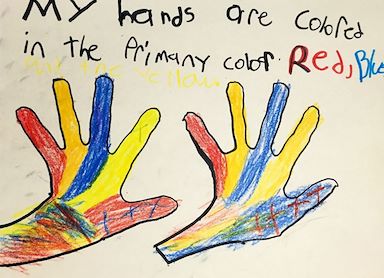 My hands are colored
in the Primary color Red, Blue
and the yellow.